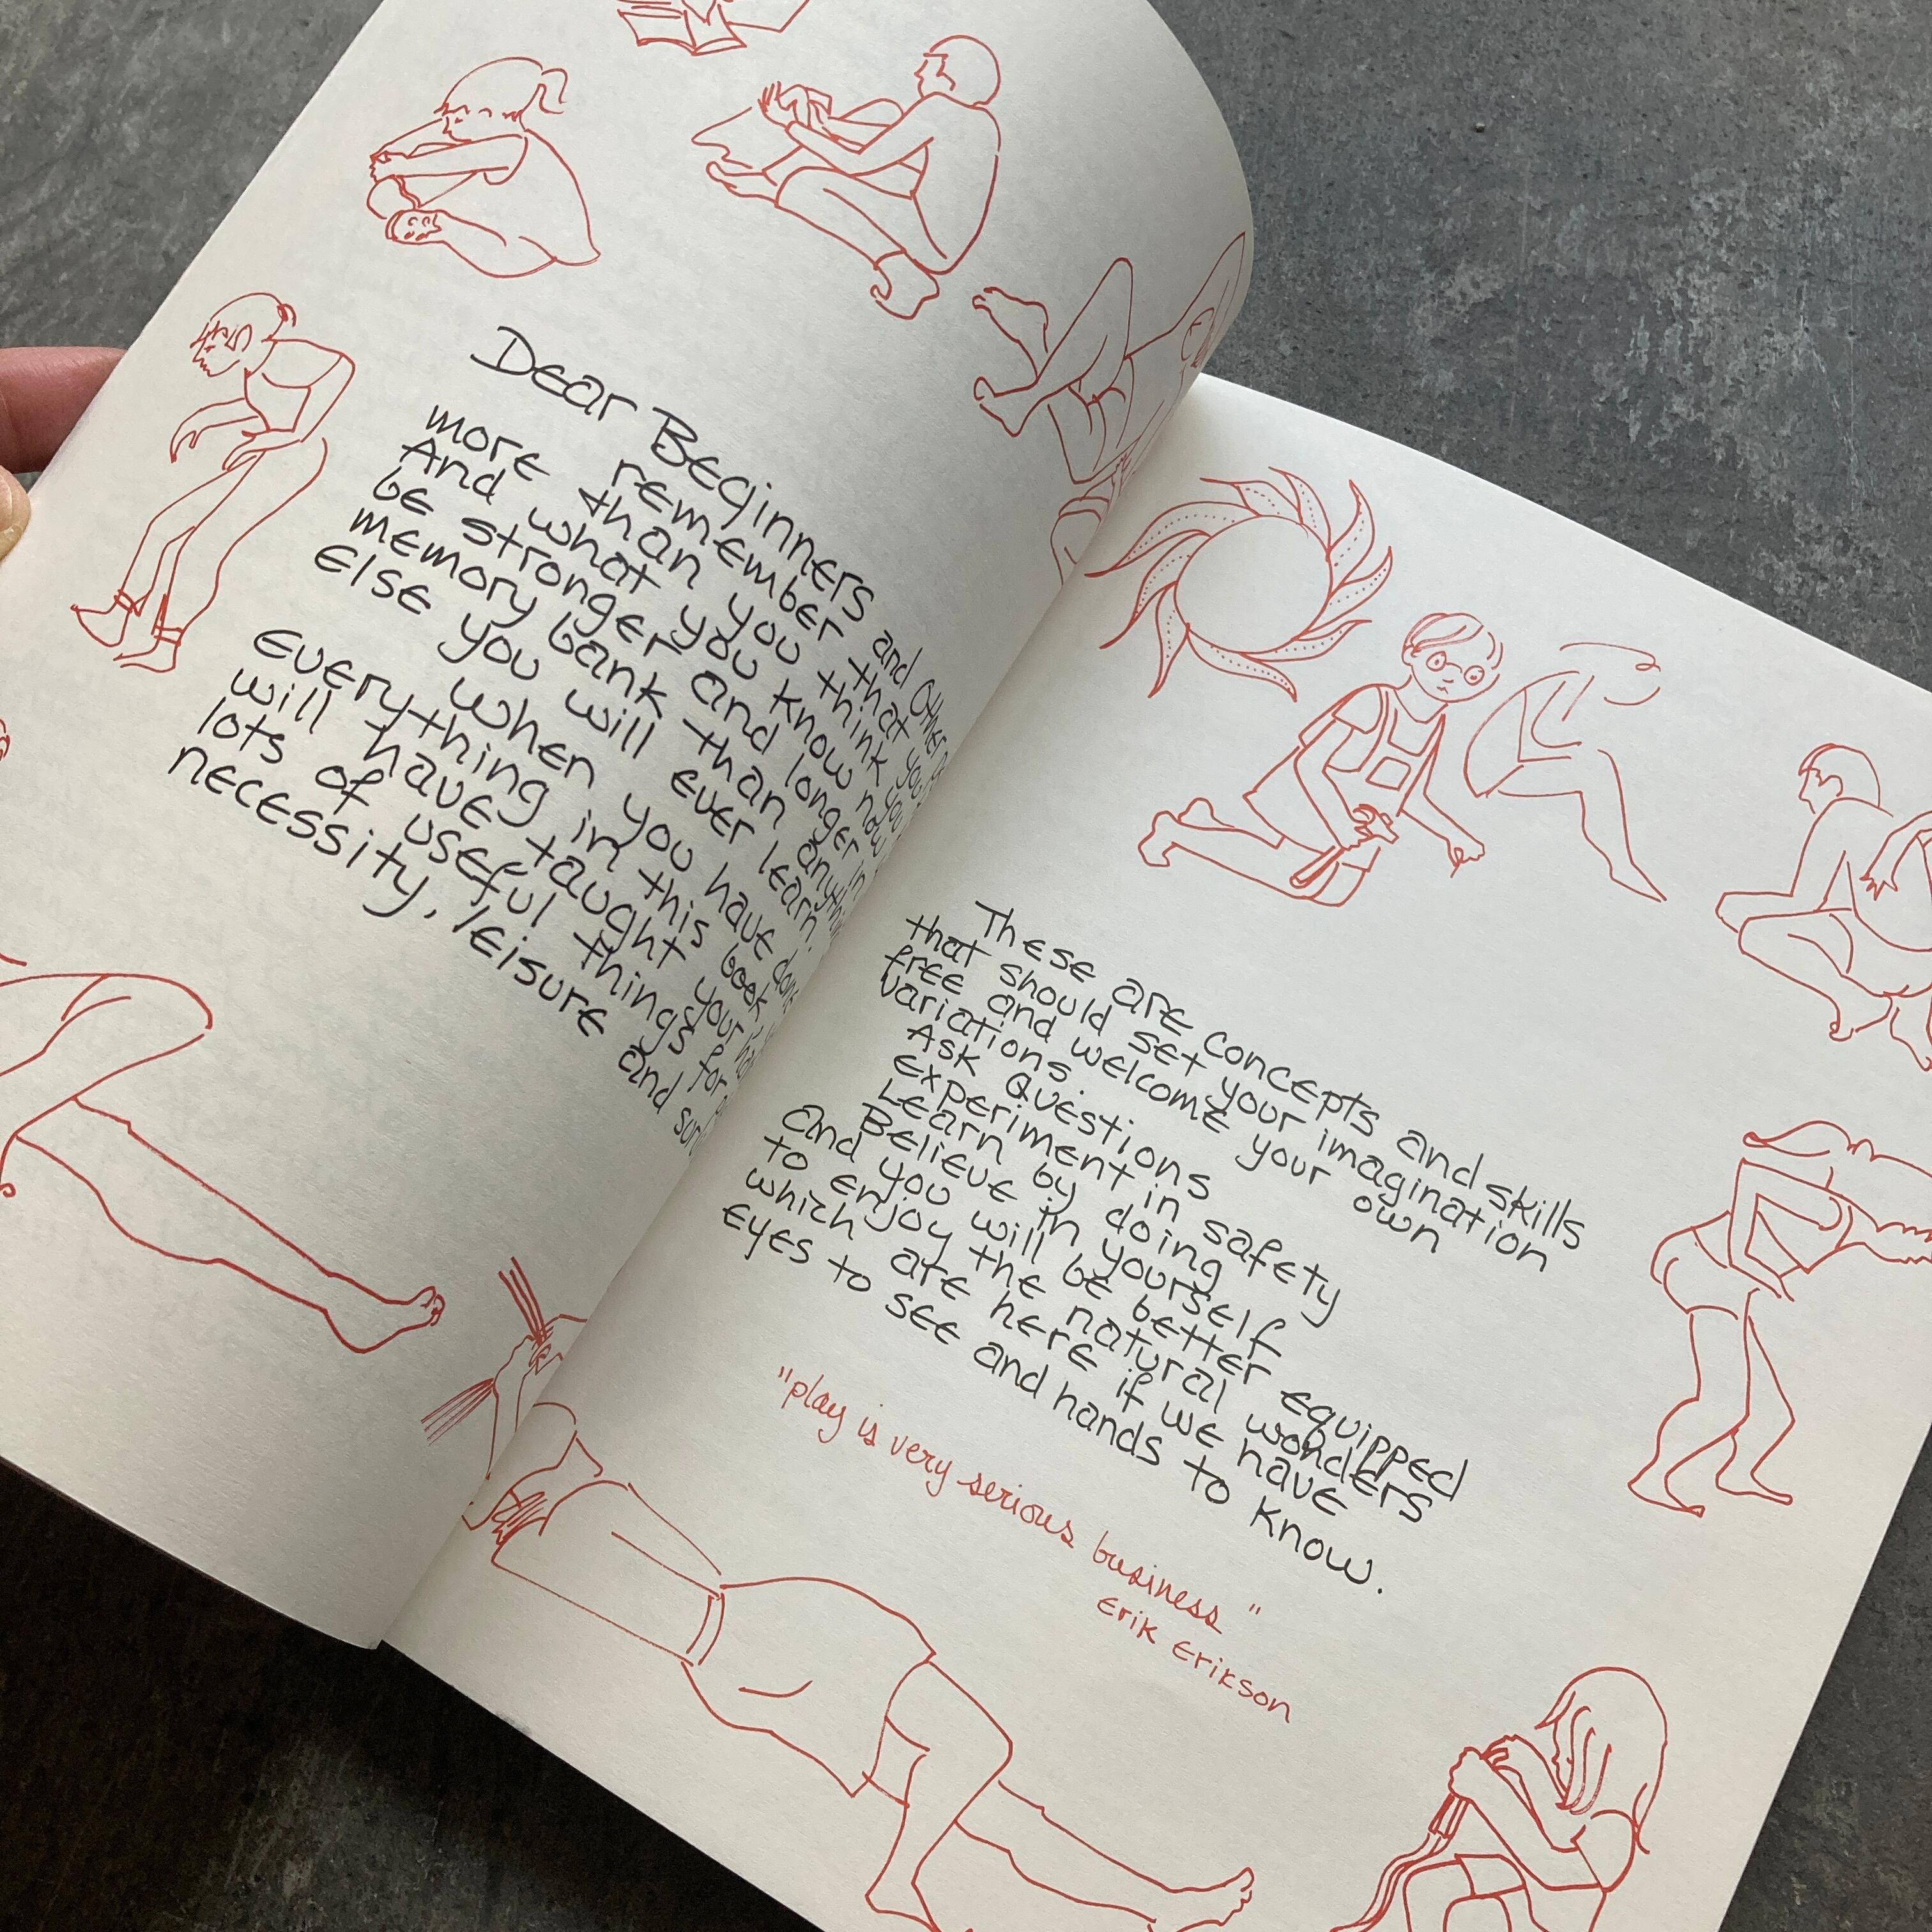 Dear Beginners and
remember that you
more than you think you
And what you know now
be stronger and longer in
memory bank than
else you will ever learn.
when you have done
everything in this book
will have taught your
lots of useful things for
necessity, leisure and
These are concepts and skills
that should set your imagination
free and welcome your own
variations.
Ask Questions
Experiment in safety
Learn by doing
Believe in yourself
and you will be better equipped
to enjoy the natural wonders
which are here if we have
eyes to see and hands to know.
"play is very serious business"
Erik Erikson